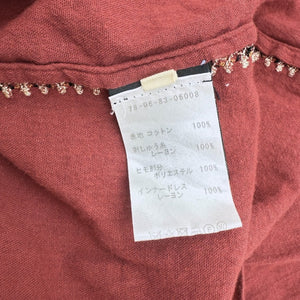 78-06-83-06008
表地 コットン 100%
刺しゅう糸
レーヨン 100%
ヒモ部分
ポリエステル 100%
インナードレス
レーヨン 100%